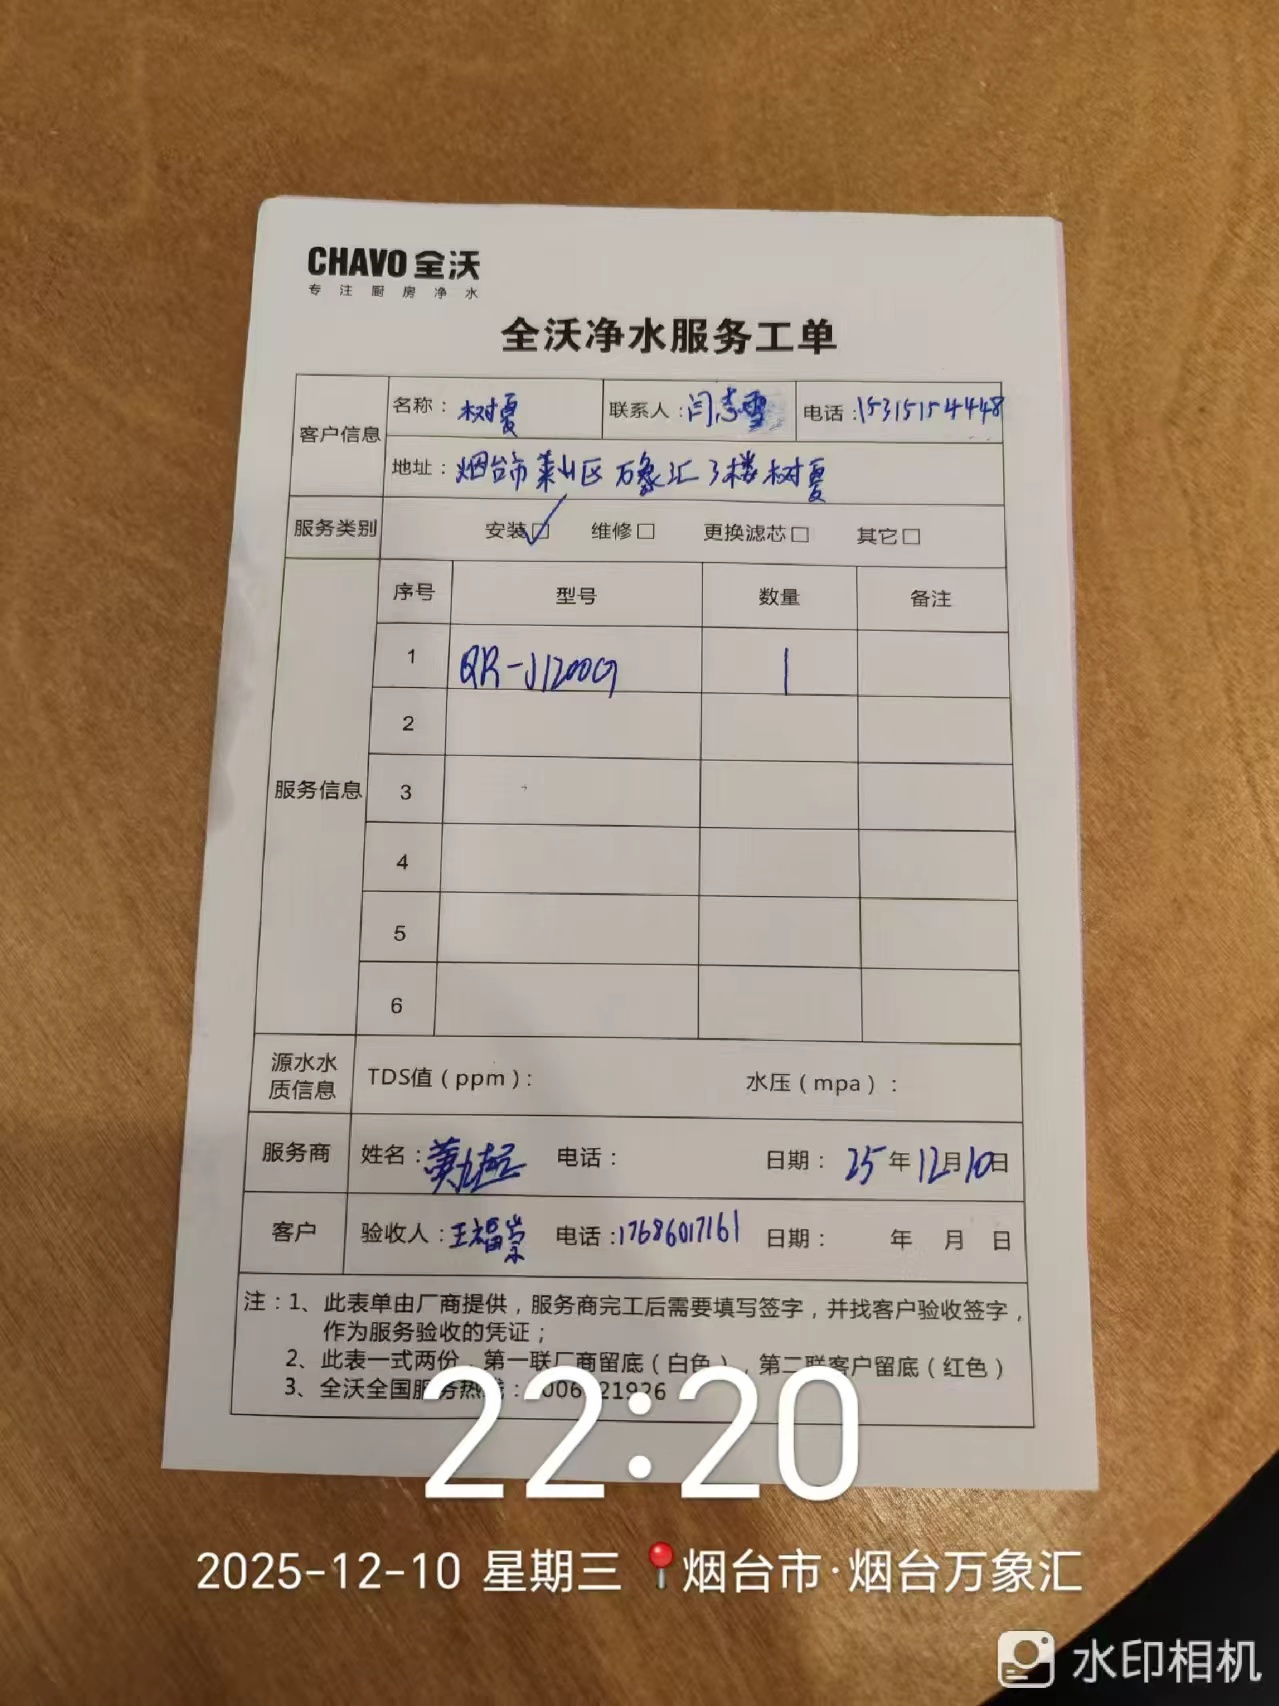 CHAVO 全沃
专注厨房净水
全沃净水服务工单
客户信息 名称：树夏 联系人：闫志雪 电话：15315154448
地址：烟台市莱山区万象汇3楼树夏
服务类别 安装☑ 维修□ 更换滤芯□ 其它□
服务信息 序号 型号 数量 备注
1 QR-J1200G 1
2
3
4
5
6
源水水质信息 TDS值（ppm）： 水压（mpa）：
服务商 姓名： 电话： 日期：25年12月10日
客户 验收人：王福荣 电话：17686017161 日期： 年 月 日
注：1、此表单由厂商提供，服务商完工后需要填写签字，并找客户验收签字，
作为服务验收的凭证；
2、此表一式两份，第一联厂商留底（白色），第二联客户留底（红色）
3、全沃全国服务热线：006 21926
22:20
2025-12-10 星期三 烟台市·烟台万象汇
水印相机